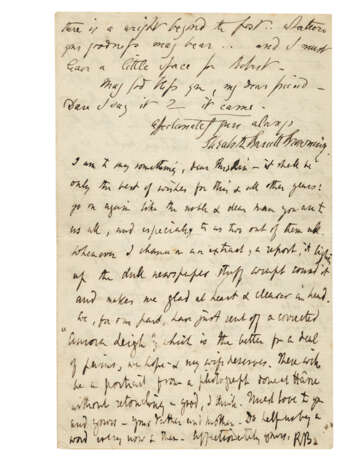 there is a weight beyond the post .. Nations
your goodness may bear .. and I must
leave a little space for Robert.
May God bless you, my dear friend -
Dare I say it? it came.
affectionately yours always
Elizabeth Barrett Browning
I am to say something, dear Ruskin - it shall be
only the best of wishes for this & all other years:
go on again like the noble & dear man you are to
us all, and especially to us two out of them all.
Whenever I chance on an extract, a report, it lights
up the dull newspaper stuff wrapt round it
and makes me glad at heart & clearer in head.
We, for our part, have just sent off a corrected
"Aurora Leigh", which is the better for a deal
of pains, we hope & my wife deserves. There will
be a portrait from a photograph done at Havre
without retouching - good, I think. Much love to you
and yours - your father and mother. Do help us by a
word every now & then. Affectionately yours, RB.